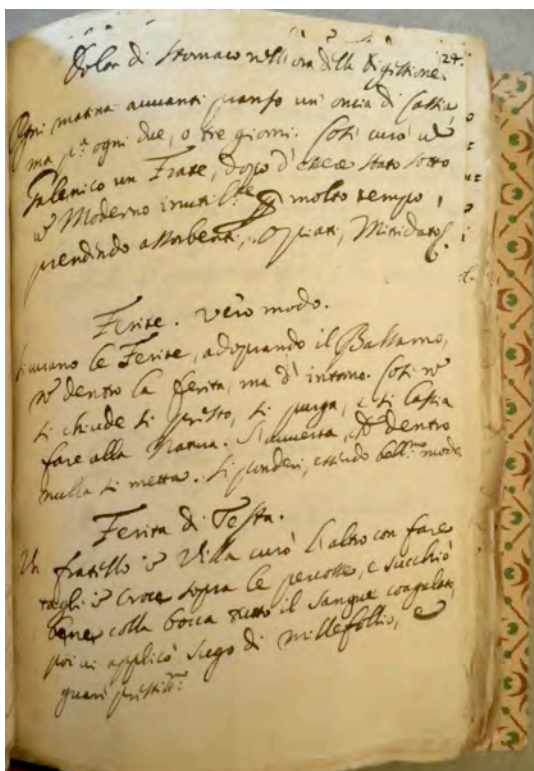 27.
Dolor di stomaco nell'ora della digestione.
Ogni matina avvanti pranso un'oncia di Cassia,
ma p.ª ogni due, o tre giorni. Così curò un
Galenico un Frate, dopo d'esser stato sotto
un Moderno inutilm.te p molto tempo,
prendendo assorbenti, opiati, Mitridato
Ferite. vero modo.
Si curano le Ferite, adoprando il Balsamo,
nò dentro la ferita, ma d'intorno. Così nò
si chiude sì presto, si purga, e si lascia
fare alla natura. S'avverta, che dentro
nulla si metta. Si ponderi, essendo bell.mo modo.
Ferita di Testa.
Un fratello in Villa curò l'altro con fare
tagli in Croce sopra le percosse, e succhiò
bene colla bocca tutto il sangue coagulato,
poi vi applicò sugo di millefollio, e
guarì